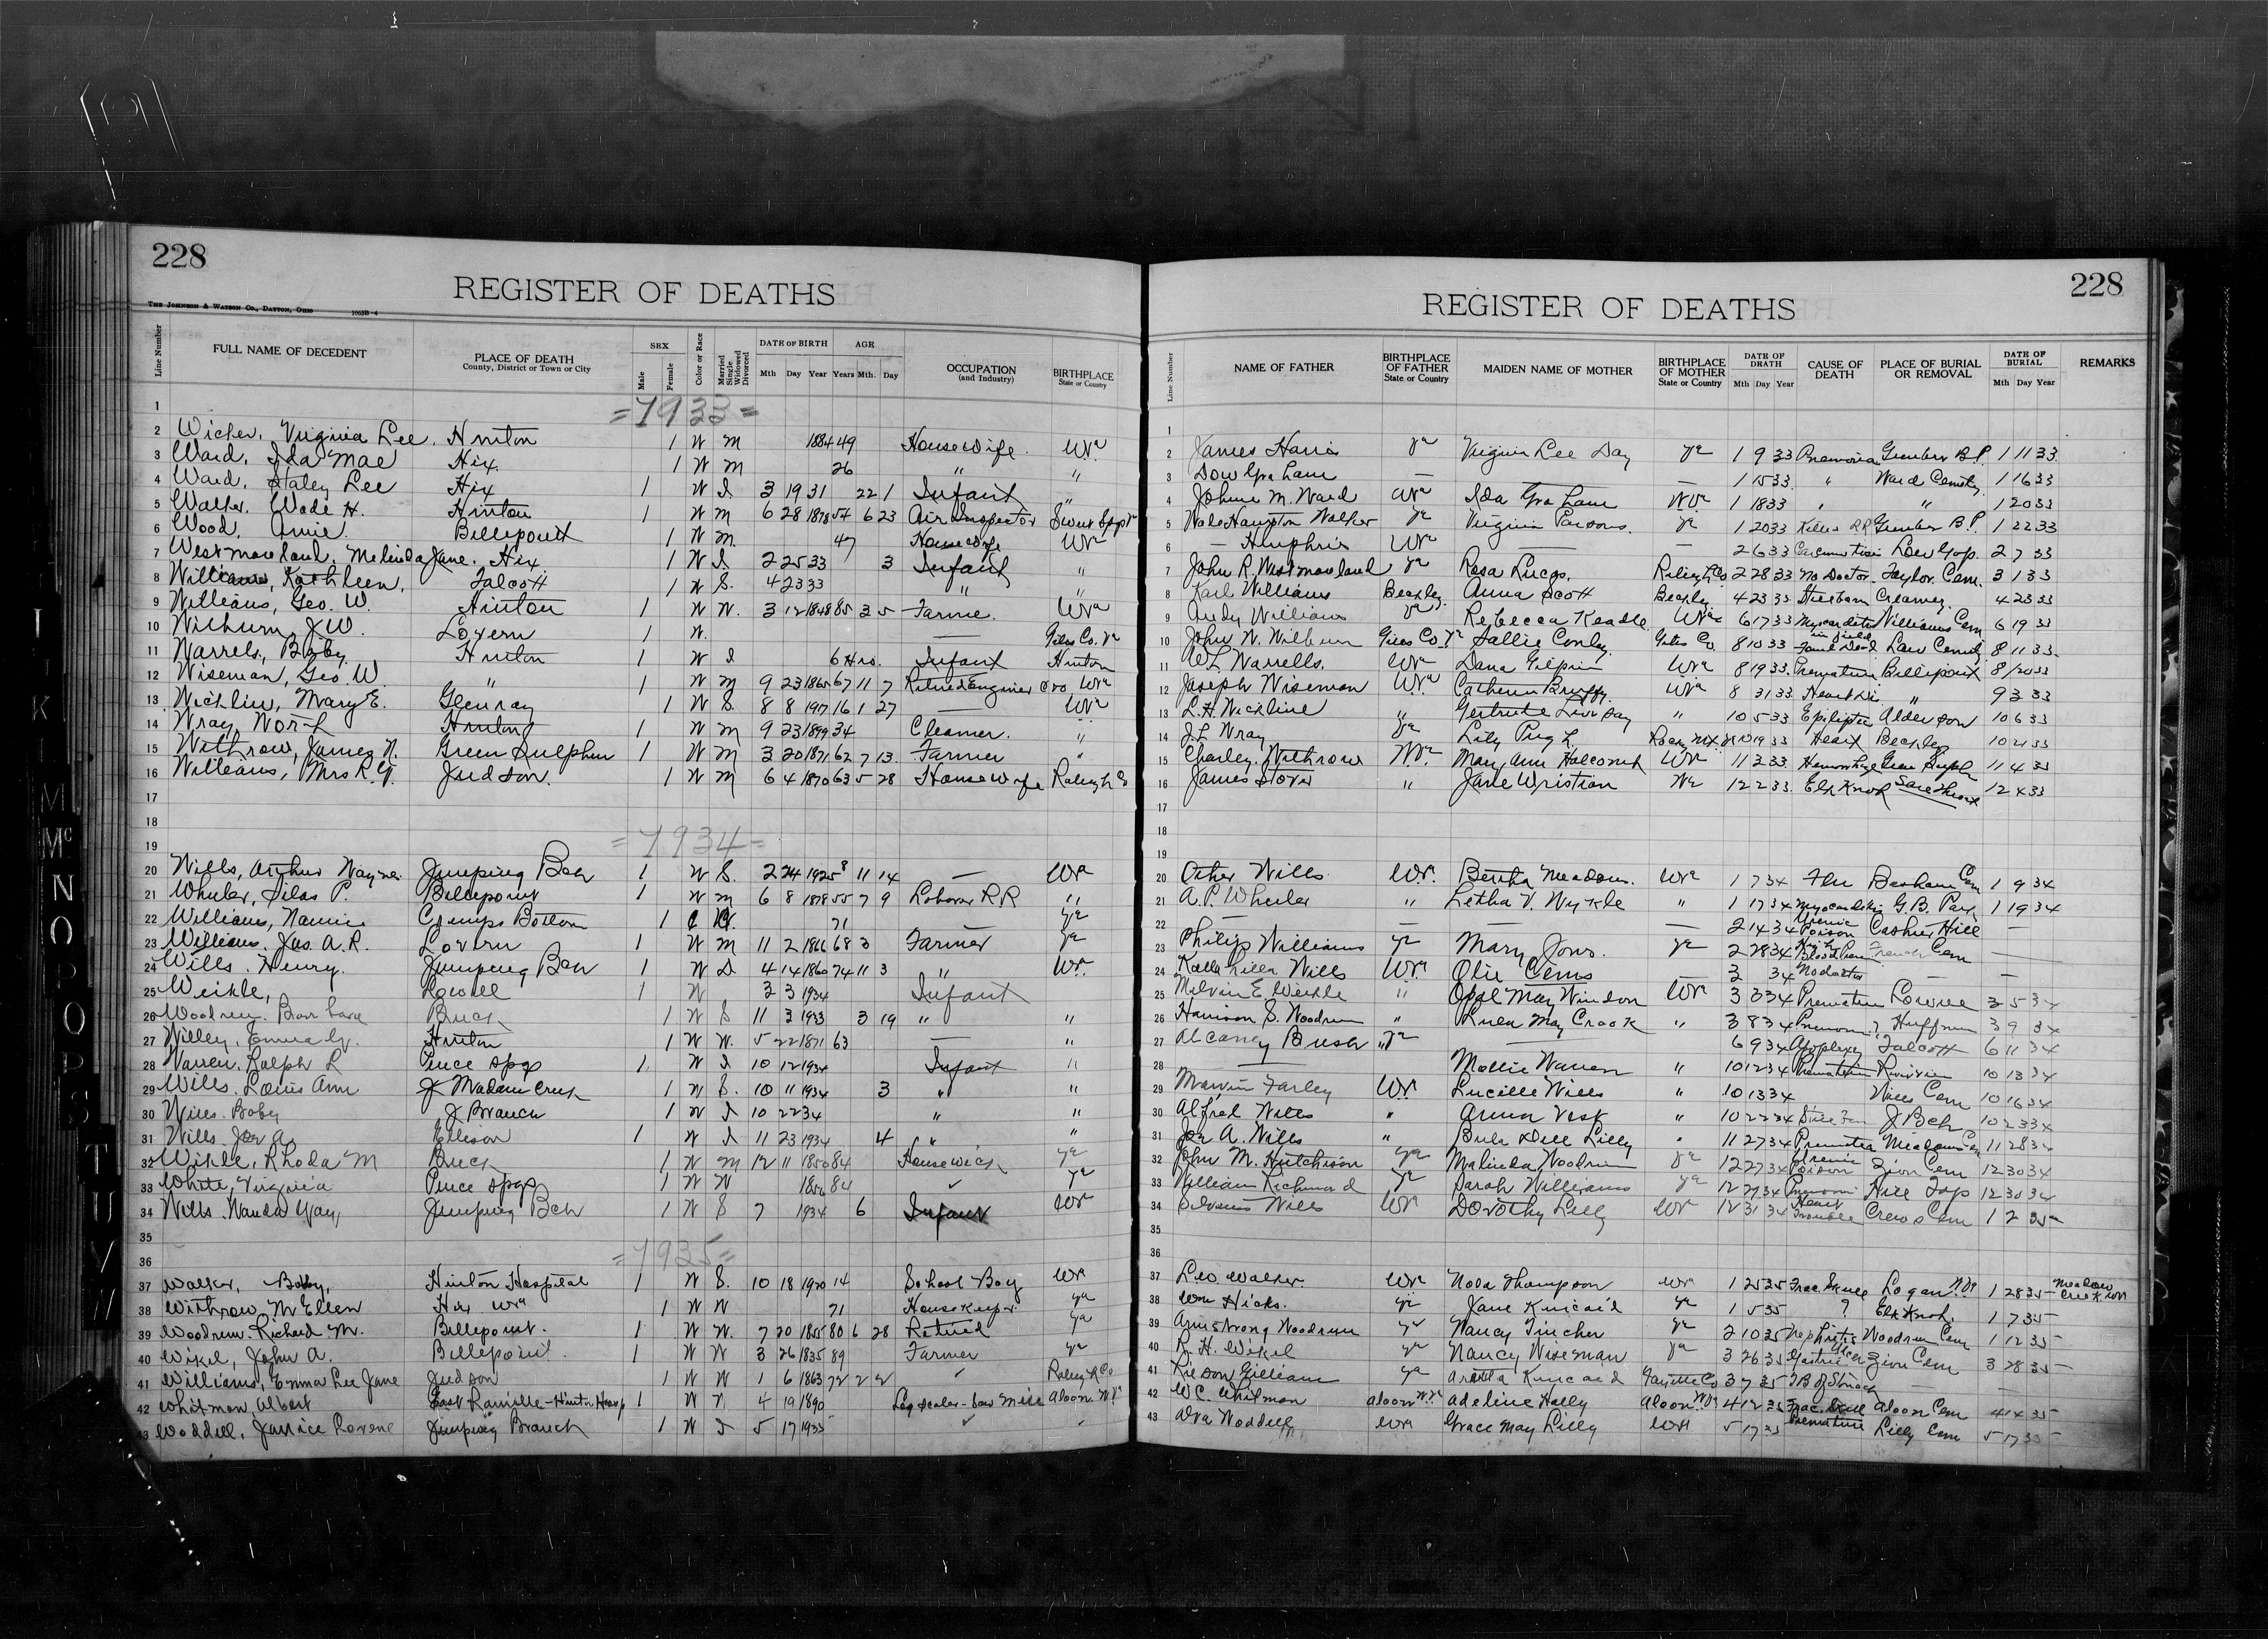 228
REGISTER OF DEATHS
THE JOHNSON & WATSON CO., DAYTON, OHIO 1063B-4
Line Number FULL NAME OF DECEDENT PLACE OF DEATH County, District or Town or City SEX Male Female Color or Race Married Single Widowed Divorced DATE OF BIRTH Mth Day Year AGE Years Mth. Day OCCUPATION (and Industry) BIRTHPLACE State or Country
1 =1933=
2 Wicher, Virginia Lee. Hinton 1 W M 1884 49 Housewife. Wva
3 Ward, Ida Mae Hix. 1 W M 26 " "
4 Ward, Haley Lee Hix 1 W S 3 19 31 22 1 Infant "
5 Walker, Wade H. Hinton 1 W M 6 28 1878 54 6 23 Air Inspector
6 Wood, Annie. Bellepoint 1 W M. 47 Housewife Wva
7 Westmoreland, Melinda Jane. Hix. 1 W S 2 25 33 3 Infant "
8 Williams, Kathleen, Talcott 1 W S. 4 23 33 " "
9 Williams, Geo. W. Hinton 1 W W. 3 12 1848 85 3 5 Farmer. Wva
10 Wilburn, J W. Lovern 1 W. — Giles Co. Va
11 Warrels, Baby. Hinton 1 W S 6 Hrs. Infant Hinton
12 Wiseman, Geo. W. " 1 W M 9 23 1865 67 11 7 Retired Engineer C&O Wva
13 Wickline, Mary E. Glenray 1 W S. 8 8 1917 16 1 27 — Wva
14 Wray, Hinton 1 W M 9 23 1899 34 Cleaner. "
15 Withrow, James N. Green Sulphur 1 W M 3 20 1871 62 7 13. Farmer "
16 Williams, Mrs R.G. Judson. 1 W M 6 4 1870 63 5 28 Housewife Raleigh Co
17
18
19 =1934=
20 Wills, Arthur Jumping Bch 1 W S. 2 24 1925 8 11 14 — Wva
21 Wheeler, Silas P. Bellepoint 1 W M 6 8 1878 55 7 9 Laborer RR "
22 Williams, Nannie Crumps Bottom 1 C W. 71 Va
23 Williams. Jas. A.R. Lovern 1 W M 11 2 1866 68 3 Farmer Va
24 Wills. Henry. Jumping Bch 1 W D. 4 14 1860 74 11 3 " Wva
25 Weikle, Lowell 1 W 3 3 1934 Infant
26 Woodrum. Barbara Buck 1 W S 11 3 1933 3 19 " "
27 Willey, Emma Hinton 1 W W. 5 22 1871 63 — "
28 Warren, Ralph L Pence Spgs 1 W S 10 12 1934 Infant "
29 Wills. Louis Ann 1 W S. 10 11 1934 3 " "
30 Wills. Baby J Branch 1 W S 10 22 34 " "
31 Wills. Joe A. Ellison 1 W S 11 23 1934 4 " "
32 Wikle, Rhoda M Buck 1 W M 12 11 1850 84 Housewife Va
33 White, Virginia Pence Spgs 1 W W 1850 84 Va
34 Wills. Wanda May, Jumping Bch 1 W S 7 1934 6 Infant Wva
35
36 =1935=
37 Walker, Bobby, Hinton Hospital 1 W S. 10 18 1920 14 School Boy Wva
38 Withrow, M Ellen Hix Wva 1 W W 71 Housekeeper Va
39 Woodrum. Richard M. Bellepoint. 1 W W. 7 20 1855 80 6 28 Retired Va
40 Wikel, John A. Bellepoint. 1 W W 3 26 1835 89 Farmer Va
41 Williams, Emma Lee Jane Judson 1 W W 1 6 1863 72 2 2 Raleigh Co
42 Whitman Albert East Rainelle-Hinton Hosp 1 W 4 19 1890 Log Scaler - Saw Mill
43 Woddell, Janice Lorene Jumping Branch 1 W S 5 17 1935
228
REGISTER OF DEATHS
Line Number NAME OF FATHER BIRTHPLACE OF FATHER State or Country MAIDEN NAME OF MOTHER BIRTHPLACE OF MOTHER State or Country DATE OF DEATH Mth Day Year CAUSE OF DEATH PLACE OF BURIAL OR REMOVAL DATE OF BURIAL Mth Day Year REMARKS
1
2 James Harris Va Virginia Lee Day Va 1 9 33 Pneumonia Greenbrier B.P. 1 11 33
3 Dow Graham — — 1 15 33 " Ward Cemetery 1 16 33
4 Johnie M. Ward Wva Ida Graham Wva 1 18 33 " " 1 20 33
5 Wade Hampton Walker Va Virginia Parsons. Va 1 20 33 Killed RR Greenbrier B.P. 1 22 33
6 — Humphries Wva — — 2 6 33 Low Gap. 2 7 33
7 John R. Westmoreland Va Rosa Lucas. Raleigh Co 2 28 33 No Doctor Taylor Cem. 3 1 33
8 Karl Williams Beckley Anna Scott Beckley 4 23 33 Stillborn Creamery. 4 23 33
9 Andy Williams Va Rebecca Keadle Wva 6 17 33 Myocarditis Williams Cem 6 19 33
10 John W. Wilburn Giles Co Va Sallie Conley. Giles Co. 8 10 33 Found Dead in field Law Cemetery 8 11 33
11 W L Warrells. Wva Dana Gilpin Wva 8 19 33 Premature Bellepoint 8 20 33
12 Joseph Wiseman Wva Catherine Wva 8 31 33 Heart Dis. " 9 3 33
13 L.H. Wickline " Gertrude Livesay " 10 5 33 Epileptic Alderson 10 6 33
14 J.L Wray Va Lily Pugh Rocky Mt. Va 10 19 33 Heart Beckley 10 21 33
15 Charley. Withrow Wva Mary Ann Holcomb Wva 11 3 33. Hemorrhage Green Sulph 11 4 33
16 James Stover " Jane Wriston Wva 12 2 33. Elk Knob 12 4 33
17
18
19
20 Other Wills Wva. Bertha Meadows. Wva 1 7 34 Flu Basham Cem 1 9 34
21 A.P. Wheeler " Letha V. Wykle " 1 17 34 Myocarditis G.B. Park 1 19 34
22 — — 2 14 34 Uremic Poison Cashus Hill —
23 Philip Williams Va Mary Jones. Va 2 28 34 High Blood Pres French Cem —
24 Wills Wva. Olie — 3 34 No doctor — —
25 Melvin E Weikle " Opal May Windon Wva 3 3 34 Premature 3 5 34
26 Harrison S. Woodrum " Lula May Crook " 3 8 34 Huffman 3 9 34
27 Bush Va — 6 9 34 Apoplexy Talcott 6 11 34
28 — Mollie Warren " 10 12 34 Premature Riverview 10 13 34
29 Marvin Farley Wva Lucille Wills " 10 13 34 Wills Cem 10 16 34
30 Alfred Wills " Anna Vest " 10 22 34 J Bch 10 23 34
31 Joe A. Wills " Beula Dell Lilly " 11 27 34 Premature Meadows Cem 11 28 34
32 John M. Hutchison Va Malinda Woodrum Va 12 27 34 Uremic Poison Zion Cem 12 30 34
33 William Richmond Va Sarah Williams Va 12 29 34 Hill Top 12 30 34
34 Silvanus Wills Wva Dorothy Lilly Wva 12 31 34 Heart Trouble Crews Cem 1 2 35
35
36
37 Leo. Walker. Wva Nola Thompson Wva 1 25 35 Frac. Skull Logan W.Va 1 28 35 Meadow Creek WVa
38 Wm Hicks. Va Jane Kincaid Va 1 5 35 ? Elk Knob. 1 7 35
39 Armstrong Woodrum Va Nancy Tincher Va 2 10 35 Nephritis Woodrum Cem 1 12 35
40 R. H. Wikel Va Nancy Wiseman Va 3 26 35 Gastric Ulcer Zion Cem 3 28 35
41 Gilliam Va Kincaid Fayette Co 3 7 35 TB of Stomach — —
42 W C. Whitman Adeline Holly 4 12 35 Frac. Skull 4 14 35
43 Ova Woddell Wva Grace May Lilly Wva 5 17 35 Premature Lilly Cem 5 17 35
I
K
M
Mc
N
O
P
O
P
S
T
U
V
W